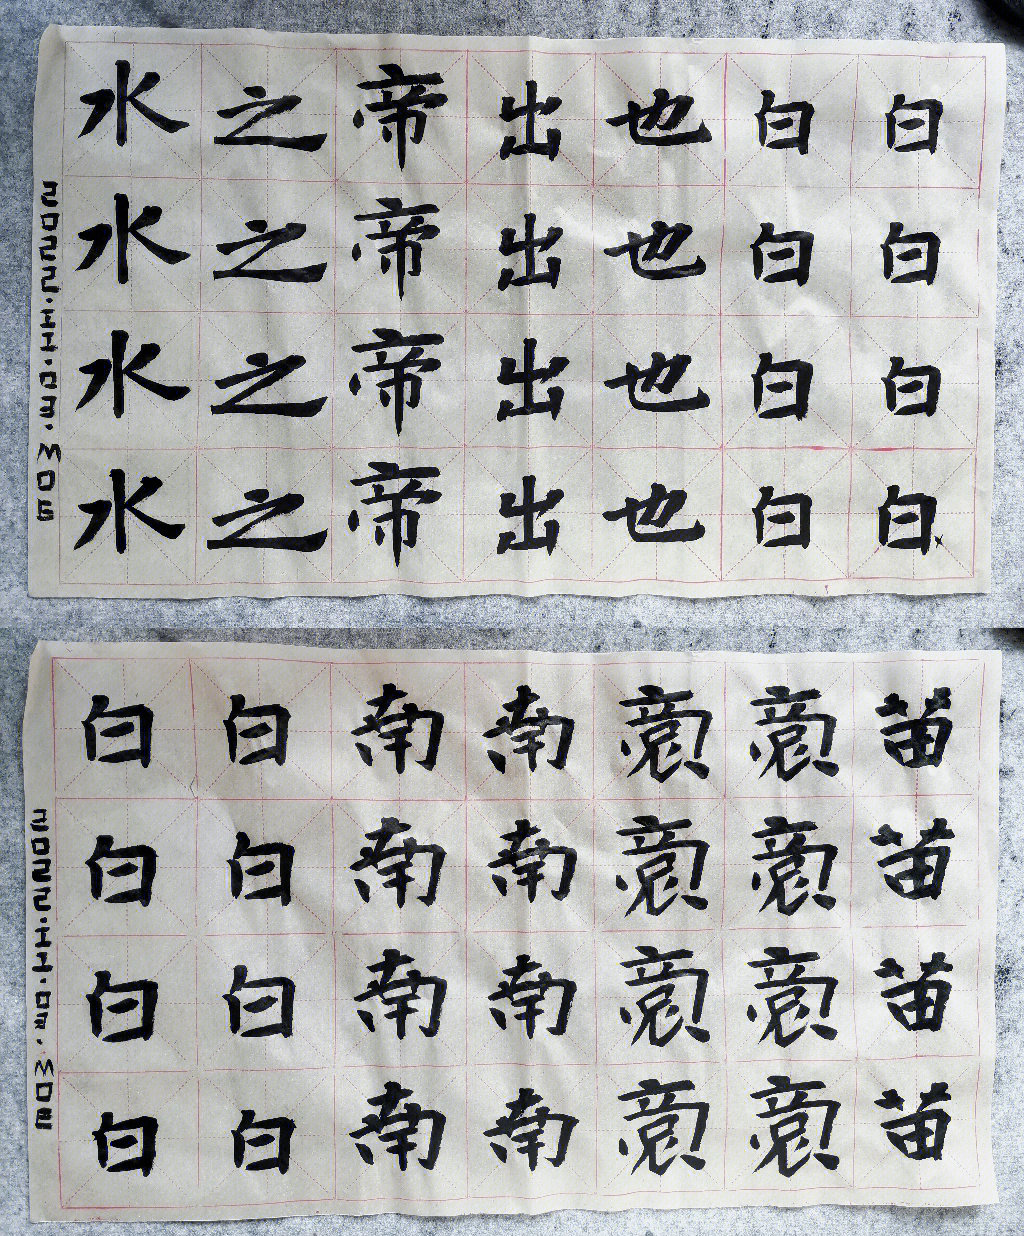 白白白白
白白白白
也也也也
出出出出
帝帝帝帝
之之之之
水水水水
2022.11.03.
苗苗苗苗
裔裔裔裔
裔裔裔裔
南南南南
南南南南
白白白白
白白白白
2022.11.